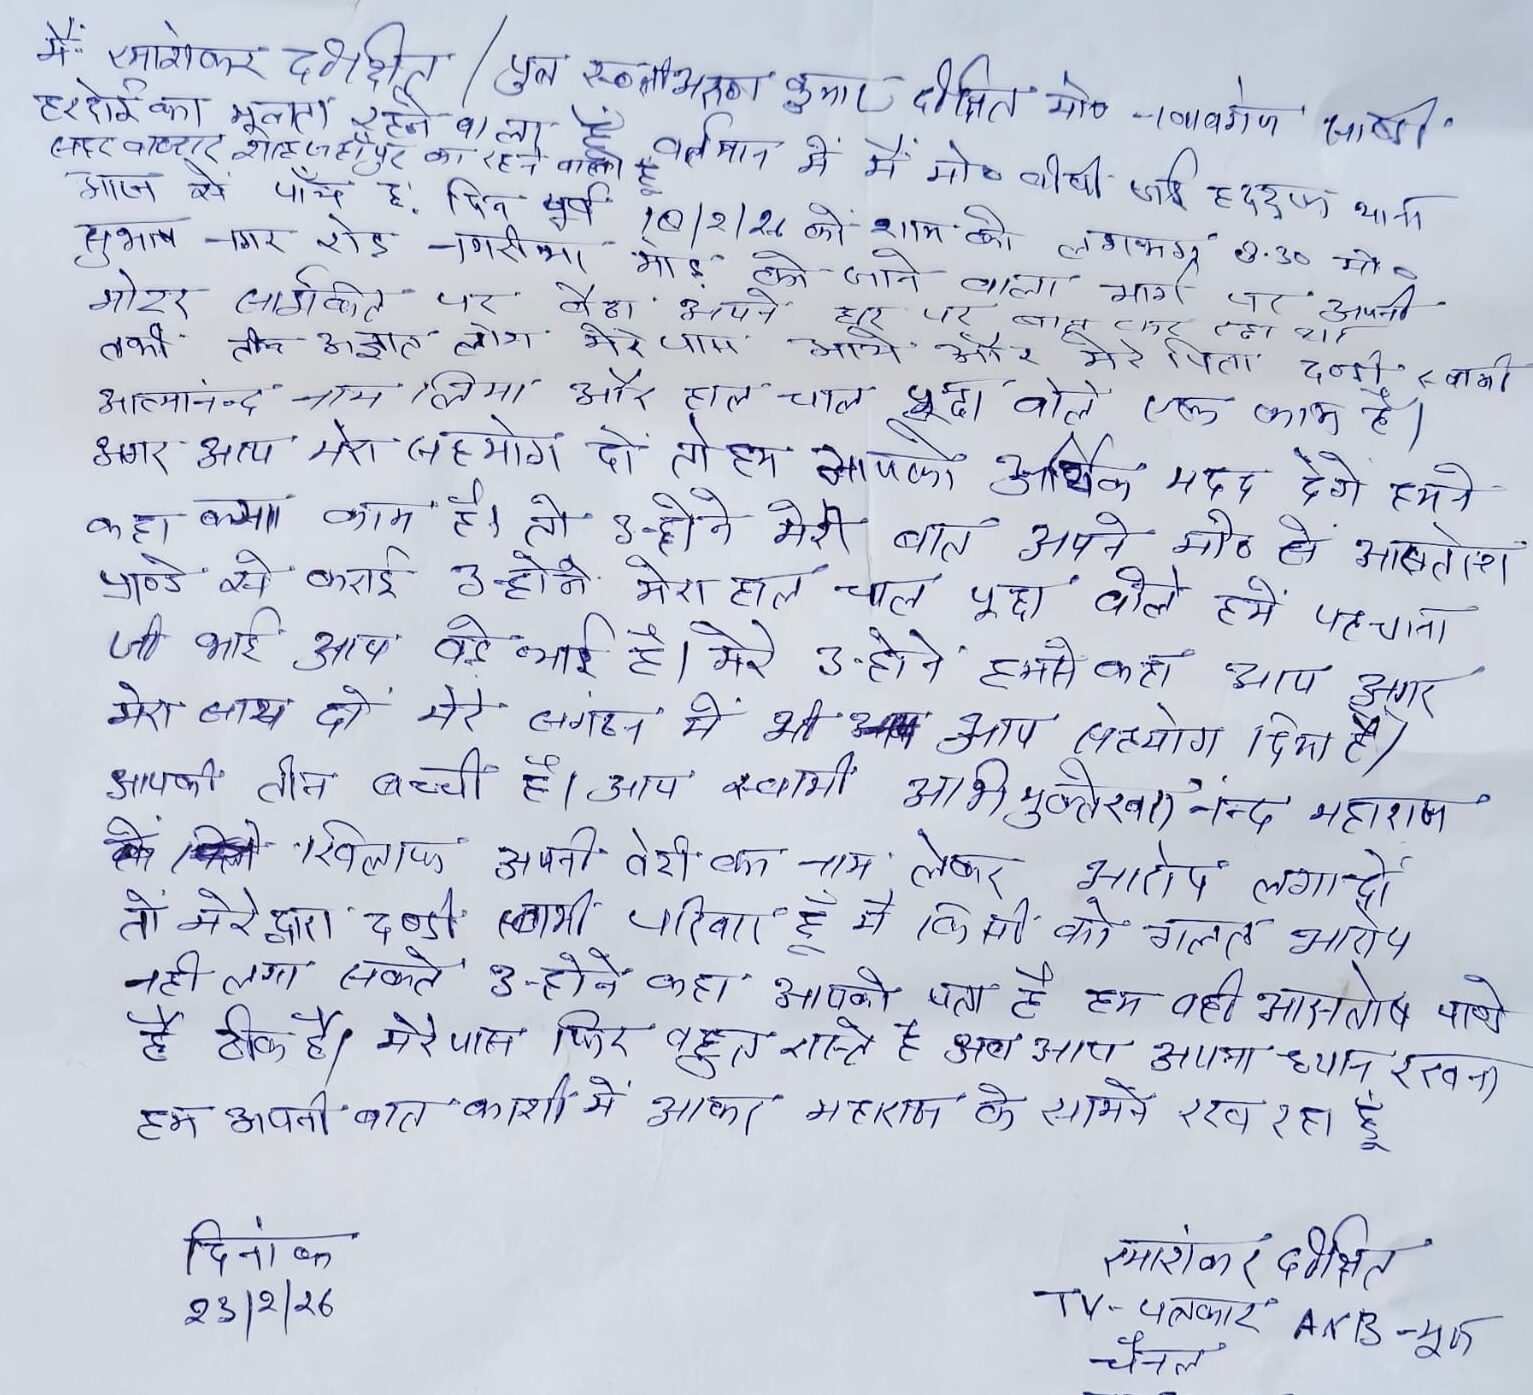 मैं रमाशंकर दीक्षित / पुत्र स्व० श्री अरुण कुमार दीक्षित मो० नवावगंज साण्डी
हरदोई का मूलता रहने वाला हूँ वर्तमान में मैं मो० वीवी जई हददफ थाना
सदर बाजार शाहजहाँपुर का रहने वाला हूँ
आज से पाँच छः दिन पूर्व 18/2/26 को शाम को लगभग 8.30 मो०
सुभाष नगर रोड नगरीया मोड़ को जाने वाला मार्ग पर अपनी
मोटर साईकिल पर बैठा अपने घर पर बात कर रहा था
तभी तीन अज्ञात लोग मेरे पास आये और मेरे पिता दण्डी स्वामी
आत्मानन्द नाम लिया और हाल चाल पूछा वोले एक काम है।
अगर आप मेरा सहयोग दों तो हम आपको आर्थिक मदद देंगे हमने
कहा क्या काम है। तो उन्होने मेरी बात अपने मो० से आसतोश
पाण्डे से कराई उन्होने मेरा हाल चाल पूछा वोले हमें पहचाना
जी भाई आप बड़े भाई है। मेरे उन्होने हमसे कहा आप अगर
मेरा साथ दों मेरे संगठन में भी आप सहयोग दिया है।
आपकी तीन बच्ची है। आप स्वामी अभिमुक्तेस्वरानंन्द महाराज
के खिलाफ अपनी वेटी का नाम लेकर आरोप लगा दों
तो मेरे द्वारा दण्डी स्वामी परिवार हूँ मैं किसी को गलत आरोप
नही लगा सकते उन्होने कहा आपको पता है हम वही आसतोष पाण्डे
है ठीक है। मेरे पास फिर वहुत रास्ते है अब आप अपना ध्यान रखना
हम अपनी बात काशी में आकर महाराज के सामने रख रहा हूँ
दिनांक
23/2/26
रमाशंकर दीक्षित
TV-पत्रकार ANB-न्यूज
चैनल